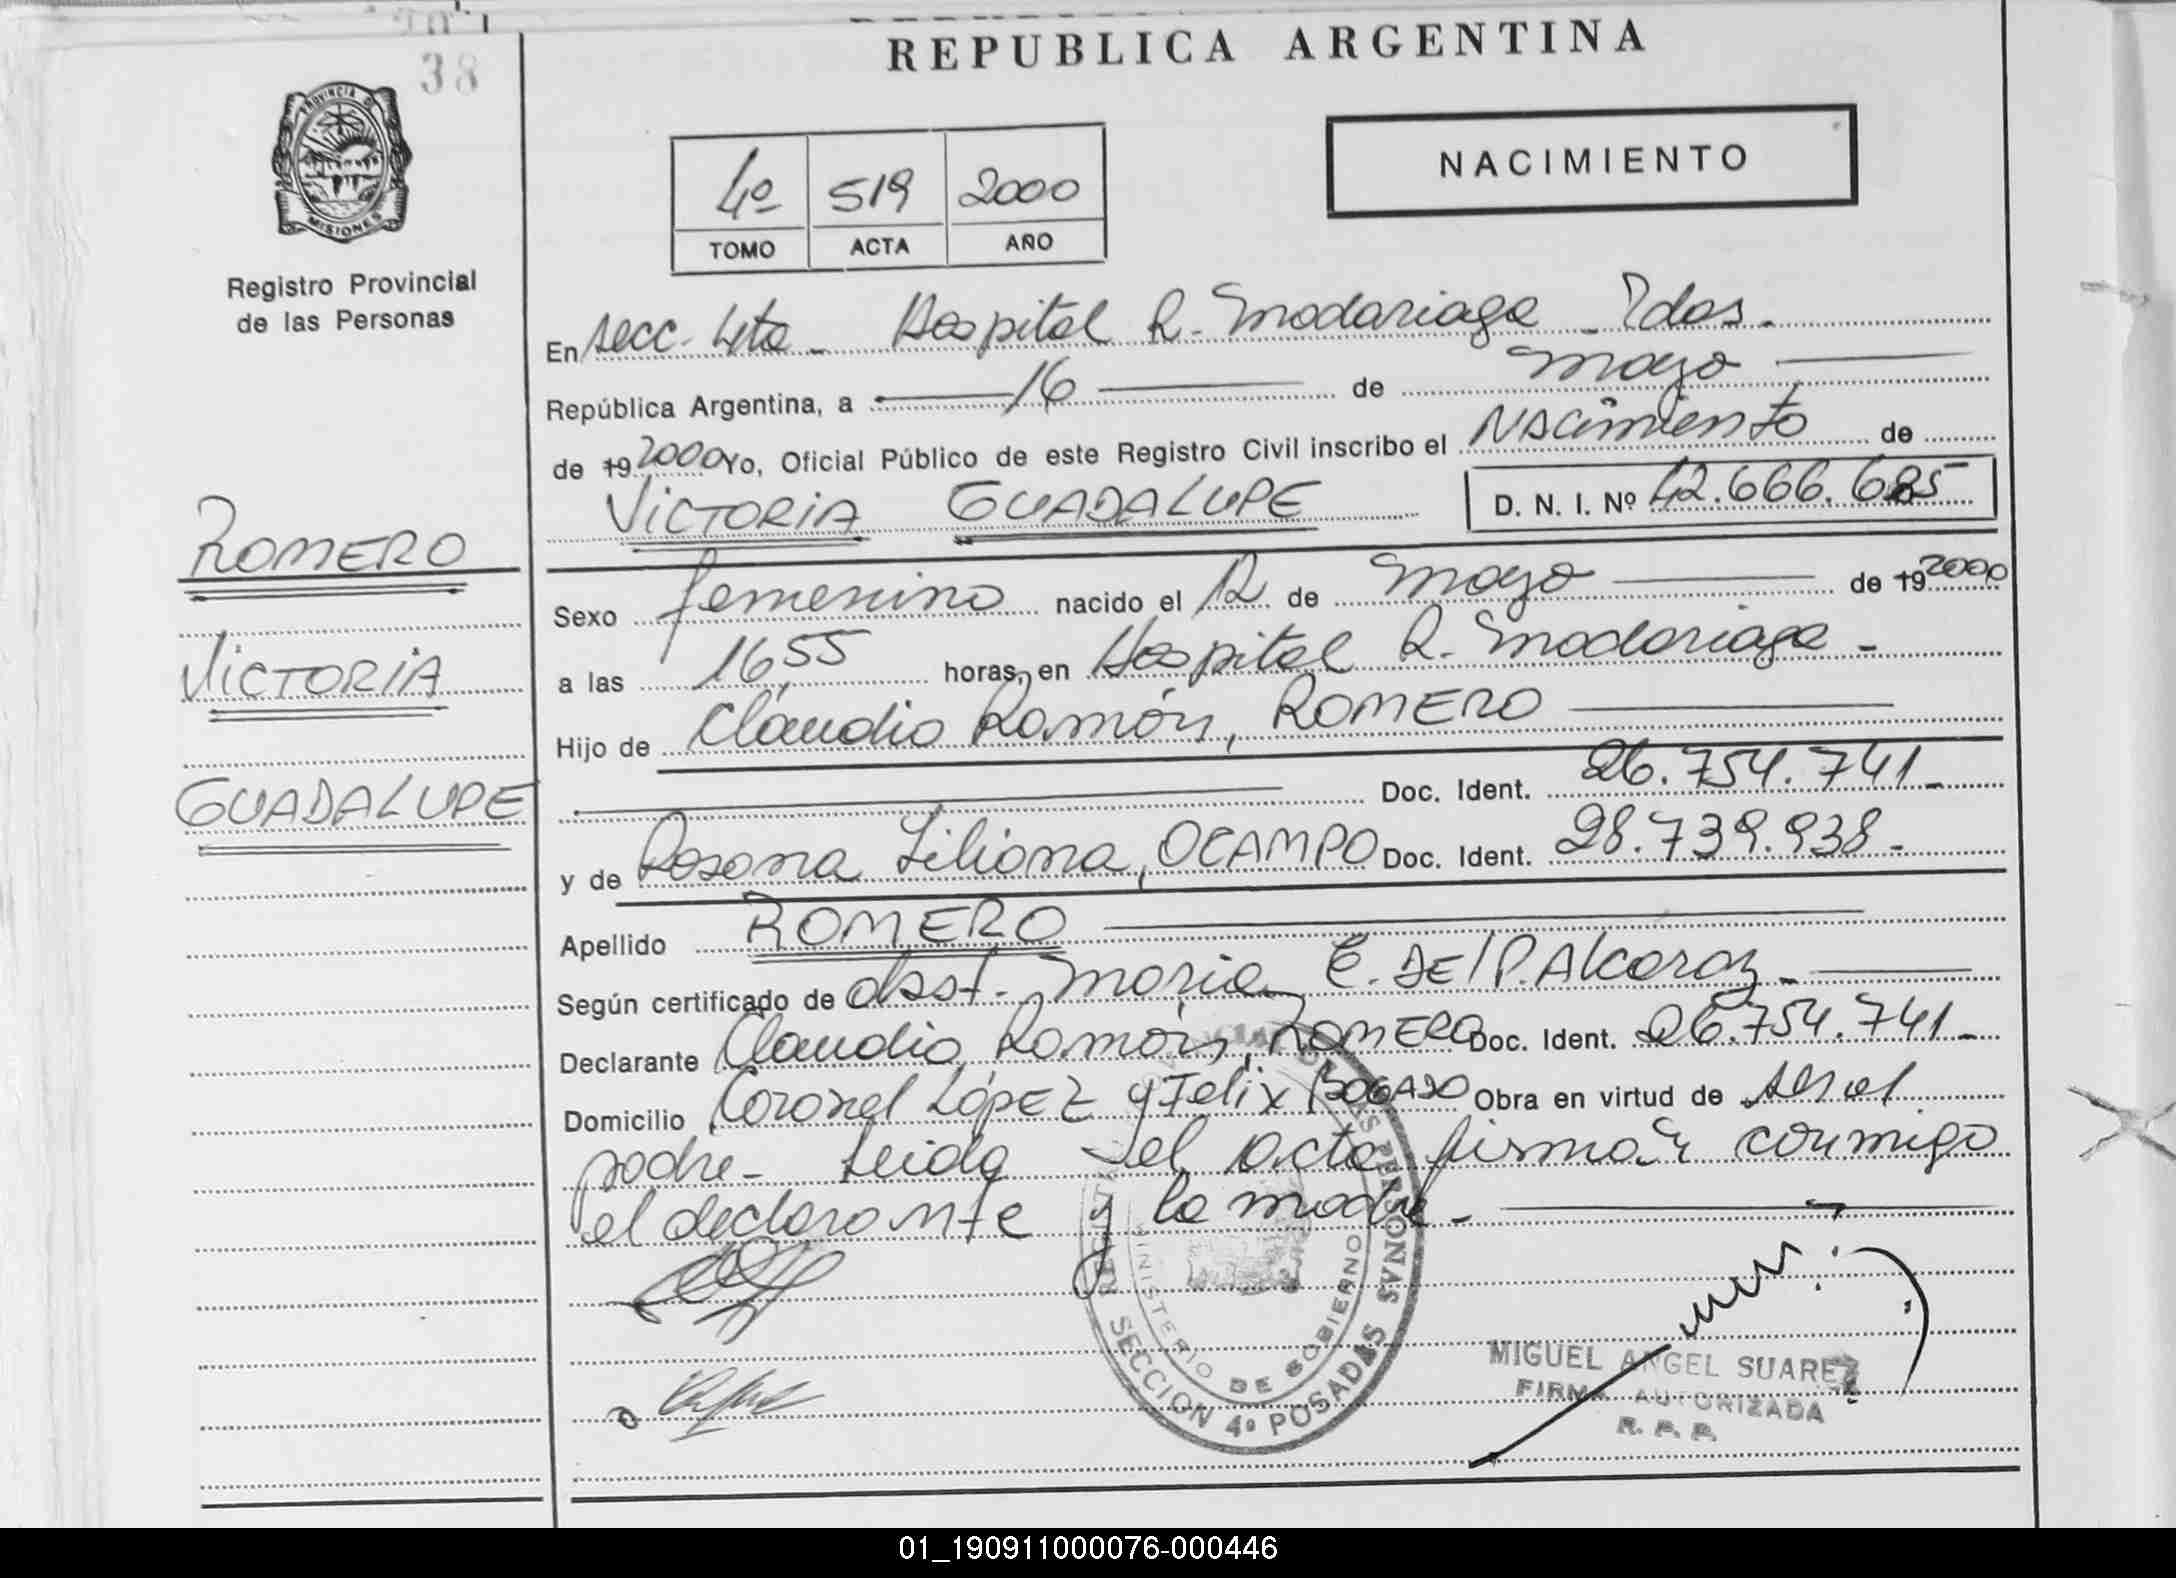 38
REPUBLICA ARGENTINA
PROVINCIA DE
MISIONES
Registro Provincial
de las Personas
4º 519 2000
TOMO ACTA AÑO
NACIMIENTO
En secc. 4ta - Hospital R. Madariaga - Pdas.
República Argentina, a 16 de mayo
de 19 2000 Yo, Oficial Público de este Registro Civil inscribo el Nacimiento de
VICTORIA GUADALUPE D. N. I. Nº 42.666.685
ROMERO
VICTORIA
GUADALUPE
Sexo femenino nacido el 12 de mayo de 19 2000
a las 16,55 horas, en Hospital R. Madariaga -
Hijo de Claudio Ramón, ROMERO
Doc. Ident. 26.754.741-
y de Rosana Liliana, OCAMPO Doc. Ident. 28.739.938-
Apellido ROMERO
Según certificado de obst. Maria E. DEl P. Alcaraz -
Declarante Claudio Ramón, ROMERO Doc. Ident. 26.754.741-
Domicilio Coronel LópEZ y Felix BOGADO Obra en virtud de ser el
padre - Leida el acta firman conmigo
el declarante y la madre -
MINISTERIO DE GOBIERNO
SECCION 4ª POSADAS
MIGUEL ANGEL SUAREZ
FIRMA AUTORIZADA
R. P. P.
01_190911000076-000446